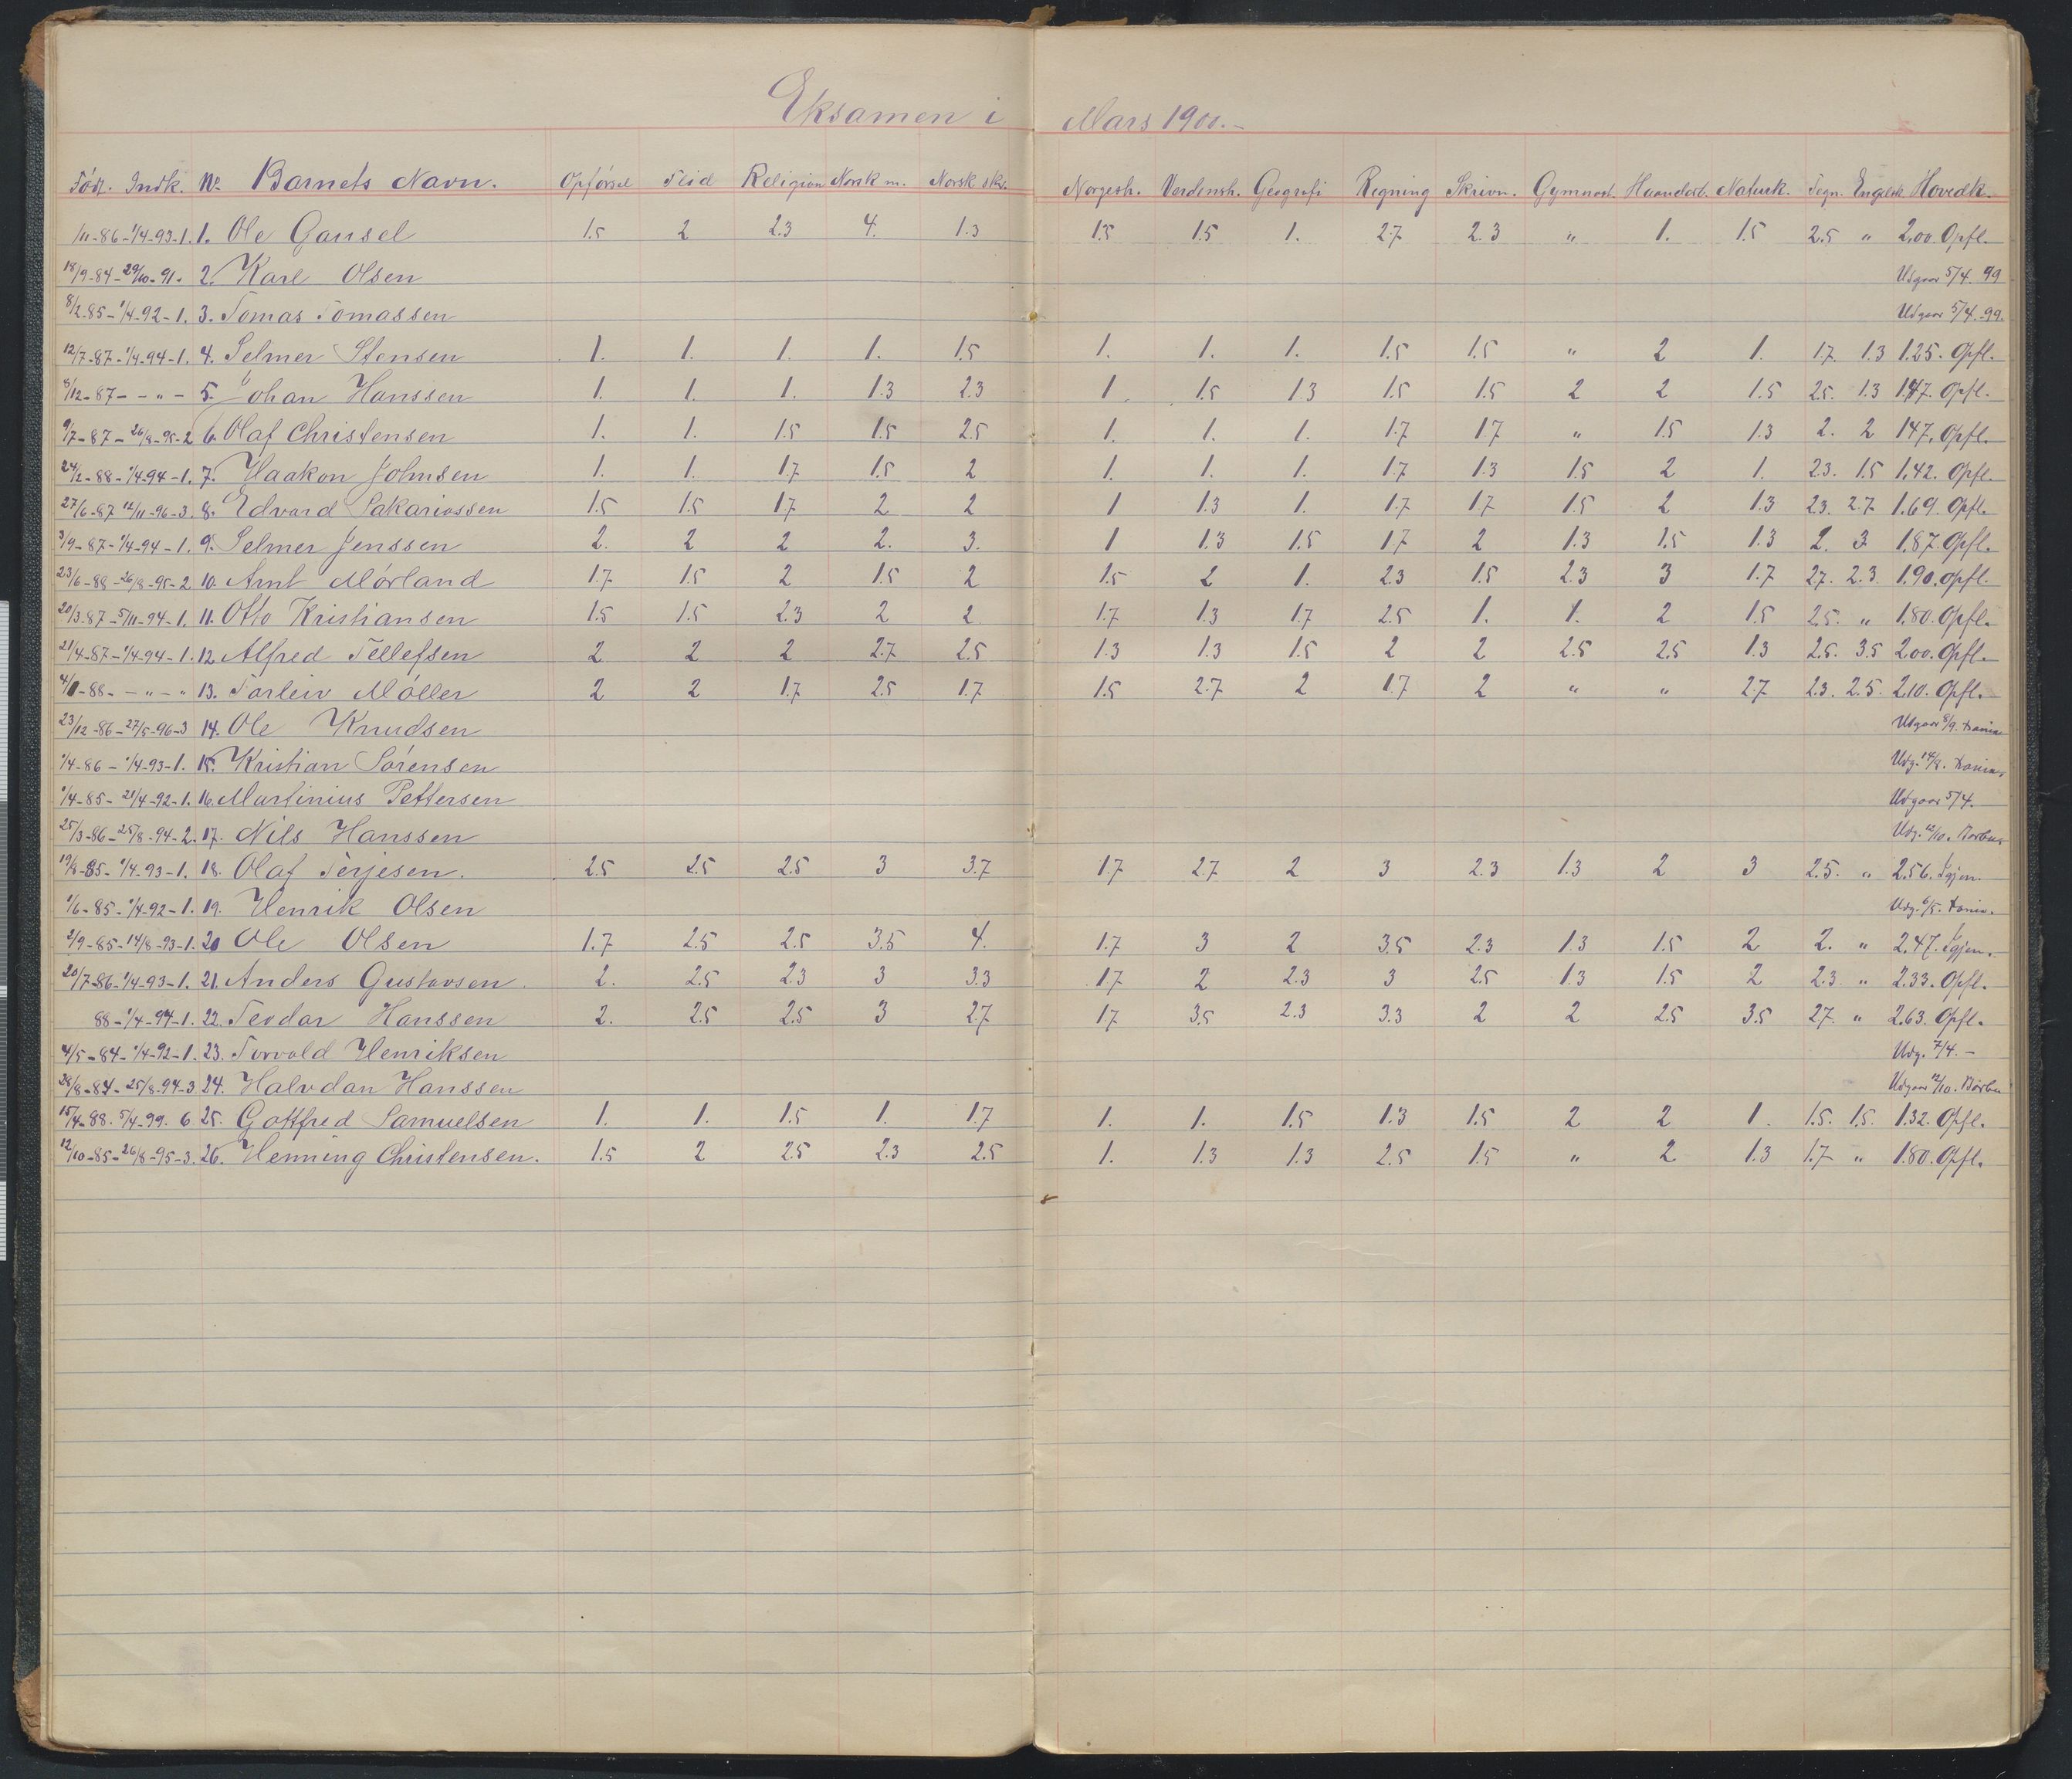 Eksamen i Mars 1900.-
Född. Indk. No. Barnets Navn. Opførsel Flid Religion Norsk m. Norsk skr. Norgesh. Verdensh. Geografi Regning Skrivn. Gymnast. Haandarb. Naturk. Tegn. Engelsk Hovedk.
1/11-86-1/4-93-1. 1. Ole Gausel 1.5 2 2.3 4. 1.3 1.5 1.5 1. 2.7 2.3 " 1. 1.5 2.5 " 2.00. Opfl.
18/9-84-29/10-91. 2. Karl Olsen Udgaar 5/4. 99
8/2.85-1/4-92-1. 3. Tomas Tomassen Udgaar 5/4.-99.
12/7-87-1/4-94-1. 4. Selmer Stensen 1. 1. 1. 1. 1.5 1. 1. 1. 1.5 1.5 " 2 1. 1.7. 1.3 1.25. Opfl.
8/12-87- - " - 5. Johan Hanssen 1. 1. 1. 1.3 2.3 1. 1.5 1.3 1.5 1.5 2 2 1.5 2.5. 1.3 1.47. Opfl.
9/7-87-26/8-95-2 6. Olaf Christensen 1. 1. 1.5 1.5 2.5 1. 1. 1. 1.7 1.7 " 1.5 1.3 2. 2 1.47. Opfl.
24/2-88-1/4-94-1. 7. Haakon Johnsen 1. 1. 1.7 1.5 2 1. 1. 1. 1.7 1.3 1.5 2 1. 2.3. 1.5 1.42. Opfl.
27/6-87 12/11-96-3. 8. Edvard Sakariassen 1.5 1.5 1.7 2 2 1 1.3 1. 1.7 1.7 1.5 2 1.3 2.3. 2.7 1.69. Opfl.
3/9-87-1/4-94-1. 9. Selmer Jenssen 2. 2 2 2. 3. 1 1.3 1.5 1.7 2 1.3 1.5 1.3 2. 3 1.87. Opfl.
23/6-88-26/8-95-2 10. Arnt Mørland 1.7 1.5 2 1.5 2 1.5 2 1. 2.3 1.5 2.3 3 1.7 2.7. 2.3. 1.90. Opfl.
20/3-87-5/11-94-1. 11. Otto Kristiansen 1.5 1.5 2.3 2 2 1.7 1.3 1.7 2.5 1. 1. 2 1.5 2.5. " 1.80. Opfl.
21/4-87-1/4-94-1. 12. Alfred Tellefsen 2 2 2 2.7 2.5 1.3 1.3 1.5 2 2 2.5 2.5 1.3 2.5. 3.5 2.00. Opfl.
4/1-88- - " - " 13. Torleiv Møller 2 2 1.7 2.5 1.7 1.5 2.7 2 1.7 2 " " 2.7 2.3. 2.5. 2.10. Opfl.
23/12-86-27/5-96-3 14. Ole Knudsen Udgaar 8/9.
1/4-86-1/4-93-1. 15. Kristian Sørensen Udg. 14/8.
1/4-85-21/4-92-1. 16. Martinius Pettersen Udgaar 5/4.
25/3-86-25/8-94-2. 17. Nils Hanssen Udg. 12/10.
19/8-85-1/4-93-1. 18. Olaf Terjesen. 2.5 2.5 2.5 3 3.7 1.7 2.7 2 3 2.3 1.3 2 3 2.5. " 2.56. Igjen.
1/6-85-1/4-92-1. 19. Henrik Olsen Udg. 6/5.
2/9-85-14/8-93-1. 20 Ole Olsen 1.7 2.5 2.5 3.5 4. 1.7 3 2 3.5 2.3 1.3 1.5 2 2. " 2.47. Igjen.
20/7-86-1/4-93-1. 21. Anders Gustavsen. 2. 2.5 2.3 3 3.3 1.7 2 2.3 3 2.5 1.3 1.5 2 2.3 " 2.33. Opfl.
88-1/4-94-1. 22. Teodar Hanssen 2. 2.5 2.5 3 2.7 1.7 3.5 2.3 3.3 2 2 2.5 3.5 2.7. " 2.63. Opfl.
4/5-84-1/4-92-1. 23. Torvald Henriksen Udg. 7/4.-
28/8-84-25/8-94-3 24. Halvdan Hanssen Udgaar 12/10.
15/4-88. 5/4-99. 6 25. Gottfred Samuelsen 1. 1. 1.5 1. 1.7 1. 1. 1.5 1.3 1.5 2 2 1. 1.5. 1.5. 1.32. Opfl.
12/10-85-26/8-95-3. 26. Henning Christensen. 1.5 2 2.5 2.3 2.5 1. 1.3 1.3 2.5 1.5 " 2 1.3 1.7 " 1.80. Opfl.